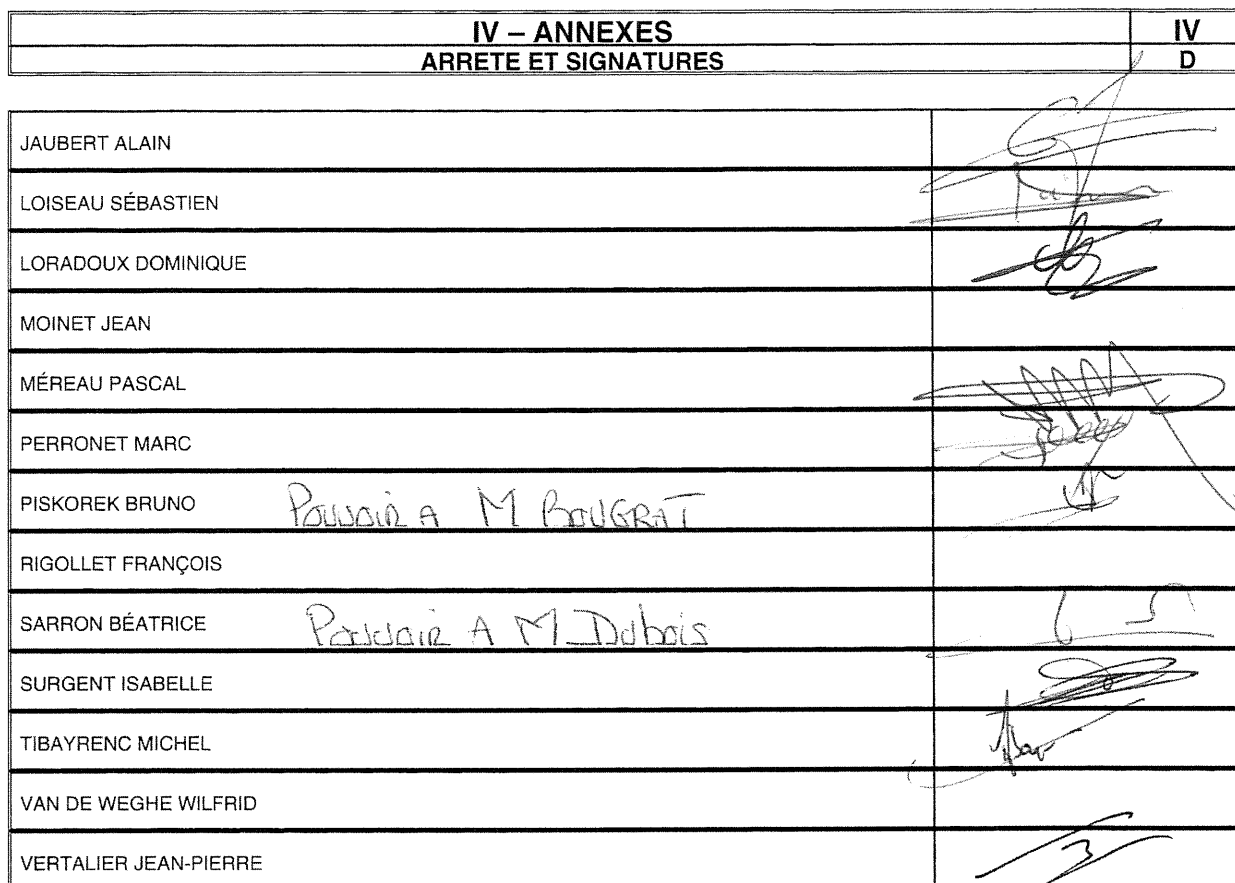 IV – ANNEXES IV
ARRETE ET SIGNATURES D
JAUBERT ALAIN
LOISEAU SÉBASTIEN
LORADOUX DOMINIQUE
MOINET JEAN
MÉREAU PASCAL
PERRONET MARC
PISKOREK BRUNO Pouvoir A M BOUGRAT
RIGOLLET FRANÇOIS
SARRON BÉATRICE Pouvoir A M Dubois
SURGENT ISABELLE
TIBAYRENC MICHEL
VAN DE WEGHE WILFRID
VERTALIER JEAN-PIERRE